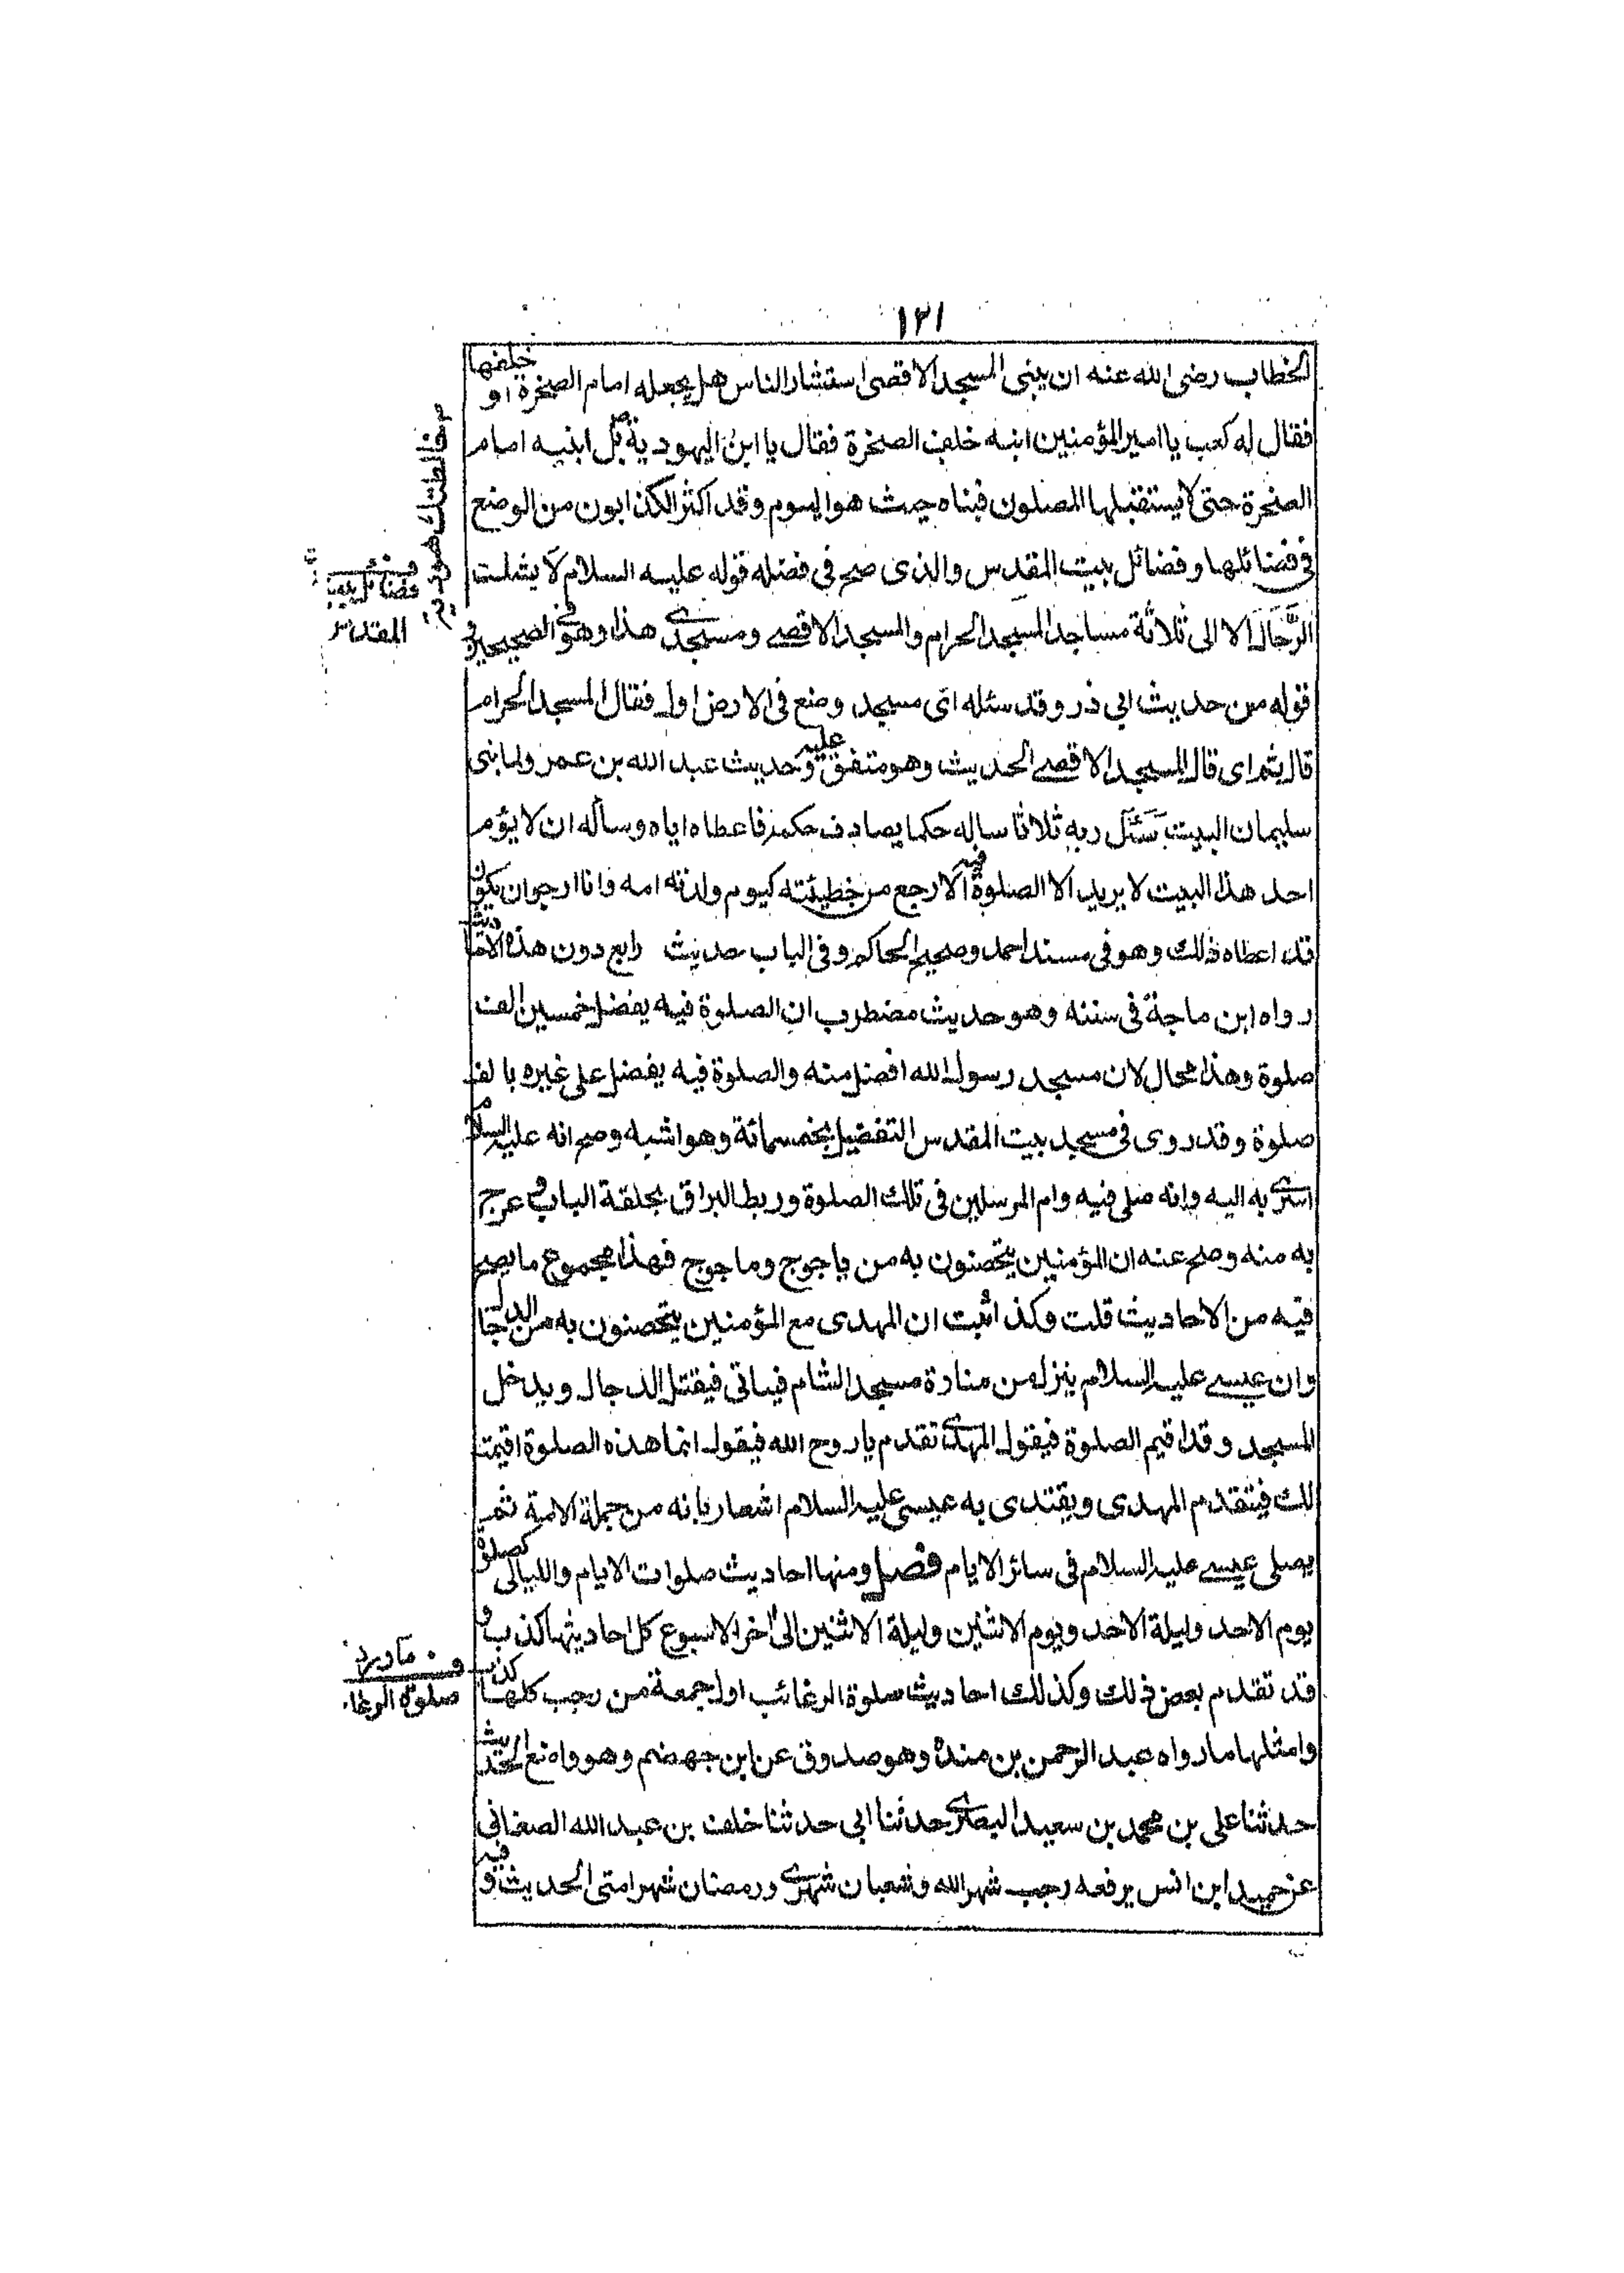 ١٢١
الخطاب رضى الله عنه ان يبنى المسجد الاقصى استشار الناس هل يجعله امام الصخرة او خلفها
فقال له كعب يا امير المؤمنين ابنه خلف الصخرة فقال يا ابن اليهودية بل ابنيه امام
خالطتك يهودية
الصخرة حتى لا يستقبلها المصلون فبناه حيث هو اليوم وقد اكثر الكذابون من الوضع
فى فضائلها و فضائل بيت المقدس والذى صح فى فضله قوله عليه السلام لا يشلت
فضائل بيت
المقدس
الرحال الا الى ثلاثة مساجد المسجد الحرام والمسجد الاقصى ومسجدى هذا وهو فى الصحيحين و
قوله من حديث ابي ذر وقد سئله اى مسجد وضع فى الارض اول فقال المسجد الحرام
قال ثم اى قال المسجد الاقصى الحديث وهو متفق عليه وحديث عبد الله بن عمر ولما بنى
سليمان البيت سئل ربه ثلاثا ساله حكما يصادف حكمه فاعطاه اياه وسأله ان لا يؤم
احد هذا البيت لا يريد الا الصلوة فيه الا رجع من خطيئته كيوم ولدته امه وانا ارجو ان يكون
قد اعطاه ذلك وهو فى مسند احمد وصحيح الحاكم وفى الباب حديث رابع دون هذه الاحاديث
رواه ابن ماجة فى سننه وهو حديث مضطرب ان الصلوة فيه يفضل خمسين الف
صلوة وهذا محال لان مسجد رسول الله افضل منه والصلوة فيه يفضل على غيره بالف
صلوة وقد روى فى مسجد بيت المقدس التفضيل بخمسمائة وهو اشبه وصح انه عليه السلام
اسرى به اليه وانه صلى فيه وام المرسلين فى تلك الصلوة وربط البراق بحلقة الباب وعرج
به منه وصح عنه ان المؤمنين يتحصنون به من ياجوج وماجوج فهذا مجموع ما يصح
فيه من الاحاديث قلت وكذا ثبت ان المهدى مع المؤمنين يتحصنون به من الدجال
وان عيسى عليه السلام ينزل من منارة مسجد الشام فياتى فيقتل الدجال ويدخل
المسجد وقد اقيم الصلوة فيقول المهدى تقدم يا روح الله فيقول انما هذه الصلوة اقيمت
لك فيتقدم المهدى ويقتدى به عيسى عليه السلام اشعارا بانه من جملة الامة ثم
يصلى عيسى عليه السلام فى سائر الايام فصل ومنها احاديث صلوات الايام والليالى كصلوة
يوم الاحد وليلة الاحد ويوم الاثنين وليلة الاثنين الى اخر الاسبوع كل احاديثها كذب و
قد تقدم بعض ذلك وكذلك احاديث صلوة الرغائب اول جمعة من رجب كلها كذب
ف ما ورد
صلوة الرغا
وامثلها ما رواه عبد الرحمن بن مندة وهو صدوق عن ابن جهضم وهو واضع الحديث
حدثنا على بن محمد بن سعيد البصرى حدثنا ابي حدثنا خلف بن عبد الله الصغانى
عن حميد ابن انس يرفعه رجب شهر الله وشعبان شهرى ورمضان شهر امتى الحديث وفيه